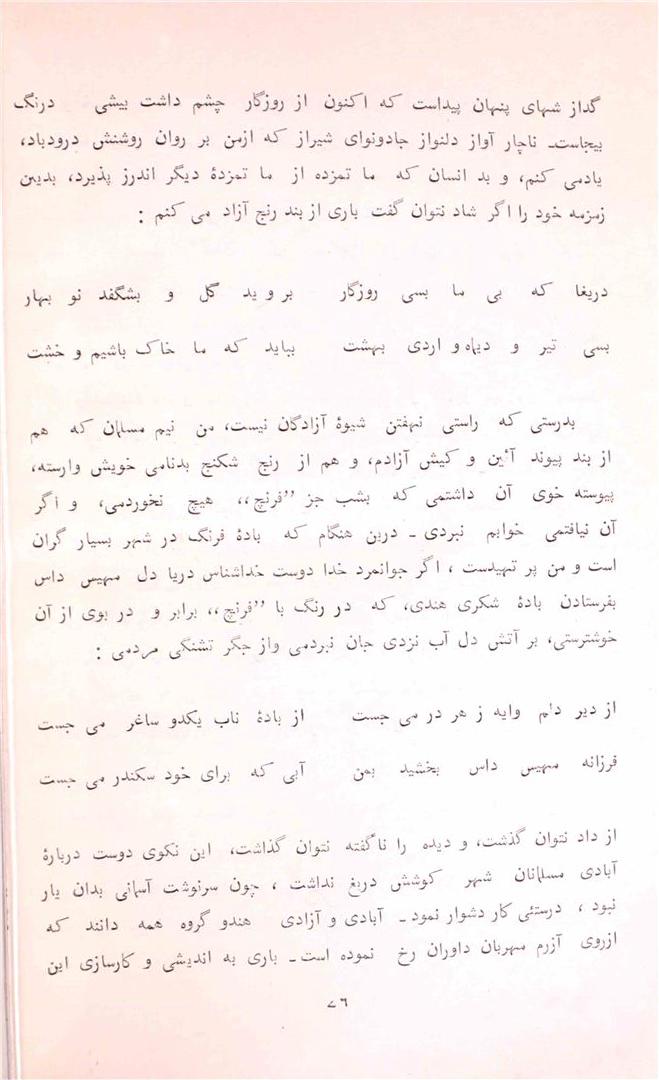 گداز شبهای پنهان پیداست که اکنون از روزگار چشم داشت بیشی درنگ
بیجاست۔ ناچار آواز دلنواز جادونوای شیراز که ازمن بر روان روشنش درودباد،
یادمی کنم، و بد انسان که ما تمزده از ما تمزدۀ دیگر اندرز پذیرد، بدین
زمزمه خود را اگر شاد نتوان گفت باری از بند رنج آزاد می کنم :
دریغا که بی ما بسی روزگار بر و ید گل و بشگفد نو بهار
بسی تیر و دیماه و اردی بهشت بیاید که ما خاک باشیم و خشت
بدرستی که راستی نهفتن شیوۀ آزادگان نیست، من نیم مسلمان که هم
از بند پیوند آئین و کیش آزادم، و هم از رنج شکنج بدنامی خویش وارسته،
پیوسته خوی آن داشتمی که بشب جز ”فرنچ،، هیچ نخوردمی، و اگر
آن نیافتمی خوابم نبردی ۔ درین هنگام که بادۀ فرنگ در شهر بسیار گران
است و من پر تهیدست ، اگر جوانمرد خدا دوست خداشناس دریا دل مهیس داس
بفرستادن بادۀ شکری هندی، که در رنگ با ”فرنچ،، برابر و در بوی از آن
خوشترستی، بر آتش دل آب نزدی جان نبردمی واز جگر تشنگی مردمی :
از دیر دلم وایه ز هر در می جست از بادۀ ناب یکدو ساغر می جست
فرزانه مهیس داس بخشید بمن آبی که برای خود سکندر می جست
از داد نتوان گذشت، و دیده را ناگفته نتوان گذاشت، این نکوی دوست دربارۀ
آبادی مسلمانان شهر کوشش دریغ نداشت ، چون سرنوشت آسمانی بدان یار
نبود ، درستئی کار دشوار نمود۔ آبادی و آزادی هندو گروه همه دانند که
ازروی آزرم مهربان داوران رخ نموده است۔ باری به اندیشی و کارسازی این
۷۶